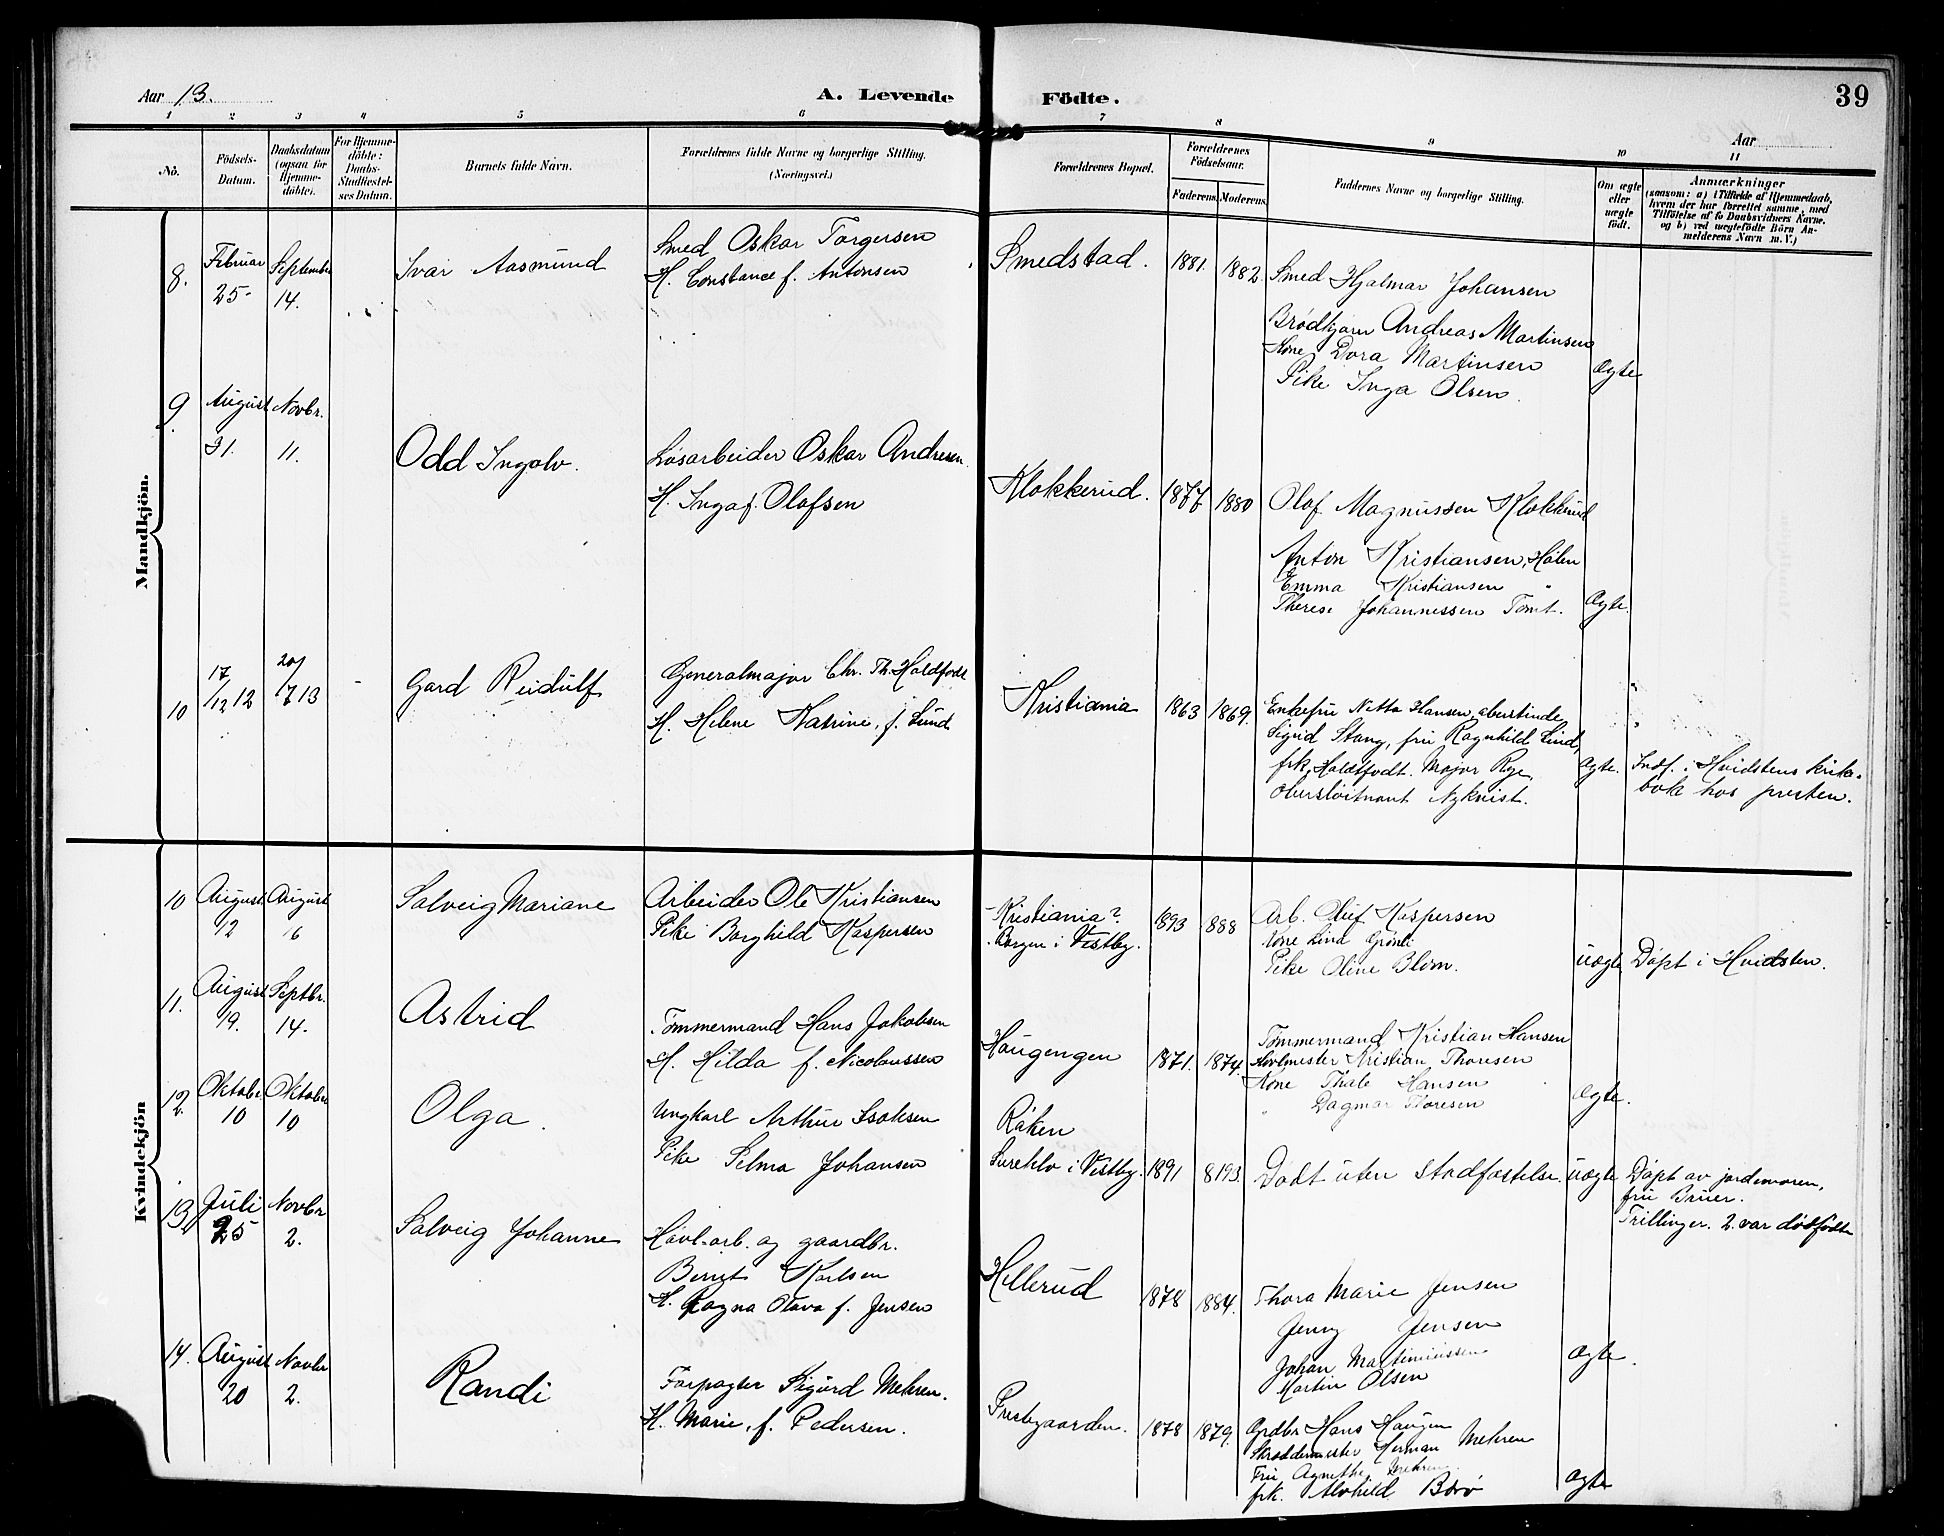 Aar 13.
A. Levende Födte.
39
Aar
1 2 3 4 5 6 7 8 9 10 11
No.
Födsels-Datum.
Daabsdatum (ogsaa for Hjemme-döbte).
For Hjemme-döbte: Daabs-Stadfæstel-ses Datum.
Barnets fulde Navn.
Forældrenes fulde Navne og borgerlige Stilling.
(Næringsvei.)
Forældrenes Bopæl.
Forældrenes Födselsaar.
Faderens. Moderens.
Faddernes Navne og borgerlige Stilling.
Om ægte eller uægte födt.
Anmærkninger
(saasom: a) i Tilfælde af Hjemmedaab, hvem der har forrettet samme, med Tilföielse af to Daabsvidners Navne, og b) ved uægtefödte Börn Anmelderens Navn m. V.)
Mandkjön.
8. Februar 25 September 14. Ivar Aasmund
Smed Oskar Torgersen
H. Constance f. Antonsen
Smedstad. 1881. 1882.
Smed Hjalmar Johansen
Brødkjører Andreas Martinsen
Kone Dora Martinsen
Pike Inga Olsen.
Ægte
9. August 31. Novbr. 11. Odd Ingolv.
Løsarbeider Oskar Andresen
H. Inga f. Olafsen
Klokkerud. 1877 1880
Olaf Magnussen Klokkerud
Anton Kristiansen, Hølen
Emma Kristiansen "
Therese Johannessen Tomt.
Ægte.
10 17/12 12 20/7 13 Gard Reidulf
Generalmajor Chr. Th. Holdfodt
H. Helene Katrine, f. Lund
Kristiania 1863 1869.
Enkefru Netta Hansen, oberstinde
Sigrid Stang, fru Ragnhild Lind,
frk. Holdtfodt. Major Rye,
Oberstløitnant Nykvist.
Ægte.
Indf. i Hvidstens kirke-
bok hos presten.
Kvindekjön
10 August 12 August 16 Solveig Mariane
Arbeider Ole Kristiansen
Pike Borghild Kaspersen
Kristiania?
Borgen i Vestby. 1893 1888
Arb. Oluf Kaspersen
Kone Lina Grønli
Pike Oline Blom.
uægte Døpt i Hvidsten.
11. August 19. Septbr. 14. Astrid
Tømmermand Hans Jakobsen
H. Hilda f. Nicolaussen
Haugengen 1871. 1874.
Tømmermand Kristian Hansen
Høvlmester Kristian Thoresen
Kone Thale Hansen
" Dagmar Thoresen
Ægte.
12. Oktober 10 Oktober 10 Olga.
Ungkarl Arthur Isaksen
Pike Selma Johansen
Råken
i Vestby. 1891 8193.
Dødt uten stadfæstelse. uægte
Døpt av jordemoren,
fru Bruer.
Trillinger. 2 var dødfødte
13. Juli 25 Novbr 2. Solveig Johanne
Høvl.arb. og gaardbr.
Bernt Karlsen
H. Ragna Olava f. Jensen
Hellerud 1878 1884.
Thora Marie Jensen
Jenny Jensen
Johan Martiniussen
Martin Olsen
Ægte.
14. August 20 Novbr 2. Randi
Forpagter Sigurd Mehren.
H. Marie, f. Pedersen.
Prestegaarden. 1878 1879.
Grdbr Hans Haugen
Skræddermester Herman Mehren
Fru Agnethe Mehren
frk. Alvhild Borø
Ægte